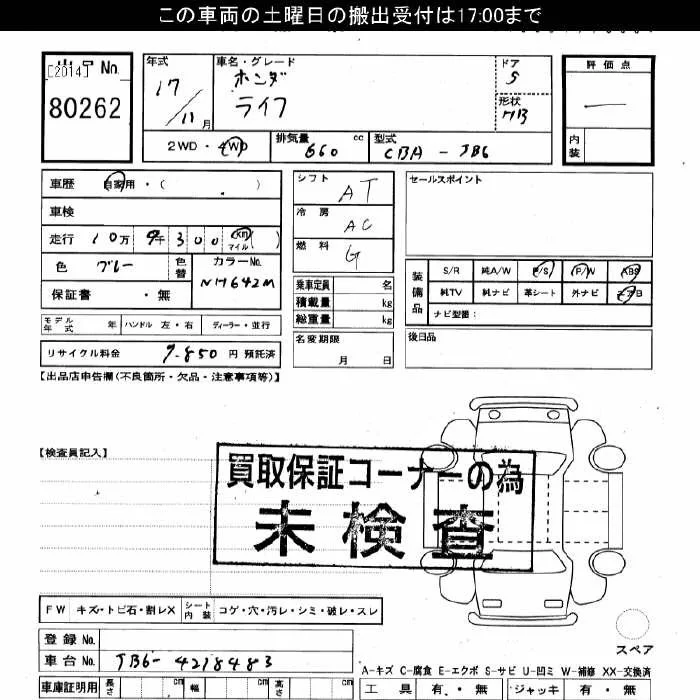 この車両の土曜日の搬出受付は17:00まで
出品No.
[2014]
80262
年式 17/11月
車名・グレード ホンダ ライフ
ドア 5
形状 HB
評価点 —
内装
2WD・4WD
排気量 660 cc
型式 CBA - JB6
車歴 自家用・( )
車検
走行 10万9千300 km マイル ( )
色 ブルー 色替
カラーNo. NH642M
保証書 ・無
モデル年式 年 ハンドル 左・右 ディーラー・並行
リサイクル料金 7,850 円 預託済
シフト AT
冷房 AC
燃料 G
乗車定員 名
積載量 kg
総重量 kg
名変期限 月 日
セールスポイント
装備品
S/R 純A/W P/S P/W ABS
純TV 純ナビ 革シート 外ナビ エアB
ナビ型番:
後日品
【出品店申告欄(不良箇所・欠品・注意事項等)】
【検査員記入】
買取保証コーナーの為
未検査
FW キズ・トビ石・割レX
シート内装 コゲ・穴・汚レ・シミ・破レ・スレ
登録No.
車台No. JB6-4218483
車庫証明用 長さ cm 幅 cm 高さ cm
スペア
A-キズ C-腐食 E-エクボ S-サビ U-凹ミ W-補修 XX-交換済
工具 有・無 ジャッキ 有・無